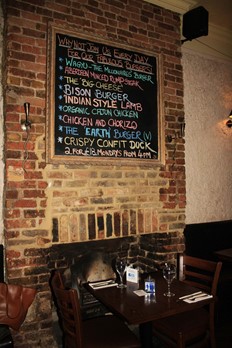 Why Not Join Us Every Day
For Our Fabulous Burgers?
* Wagyu - The Millionaires Burger
* Aberdeen Minced Rump Sugar
* The "Big Cheese"
* Bison Burger
* Indian Style Lamb
* Organic Cajun Chicken
* Chicken and Chorizo
* The Earth Burger (V)
* Crispy Confit Duck
2 For £18 Mondays From 4PM